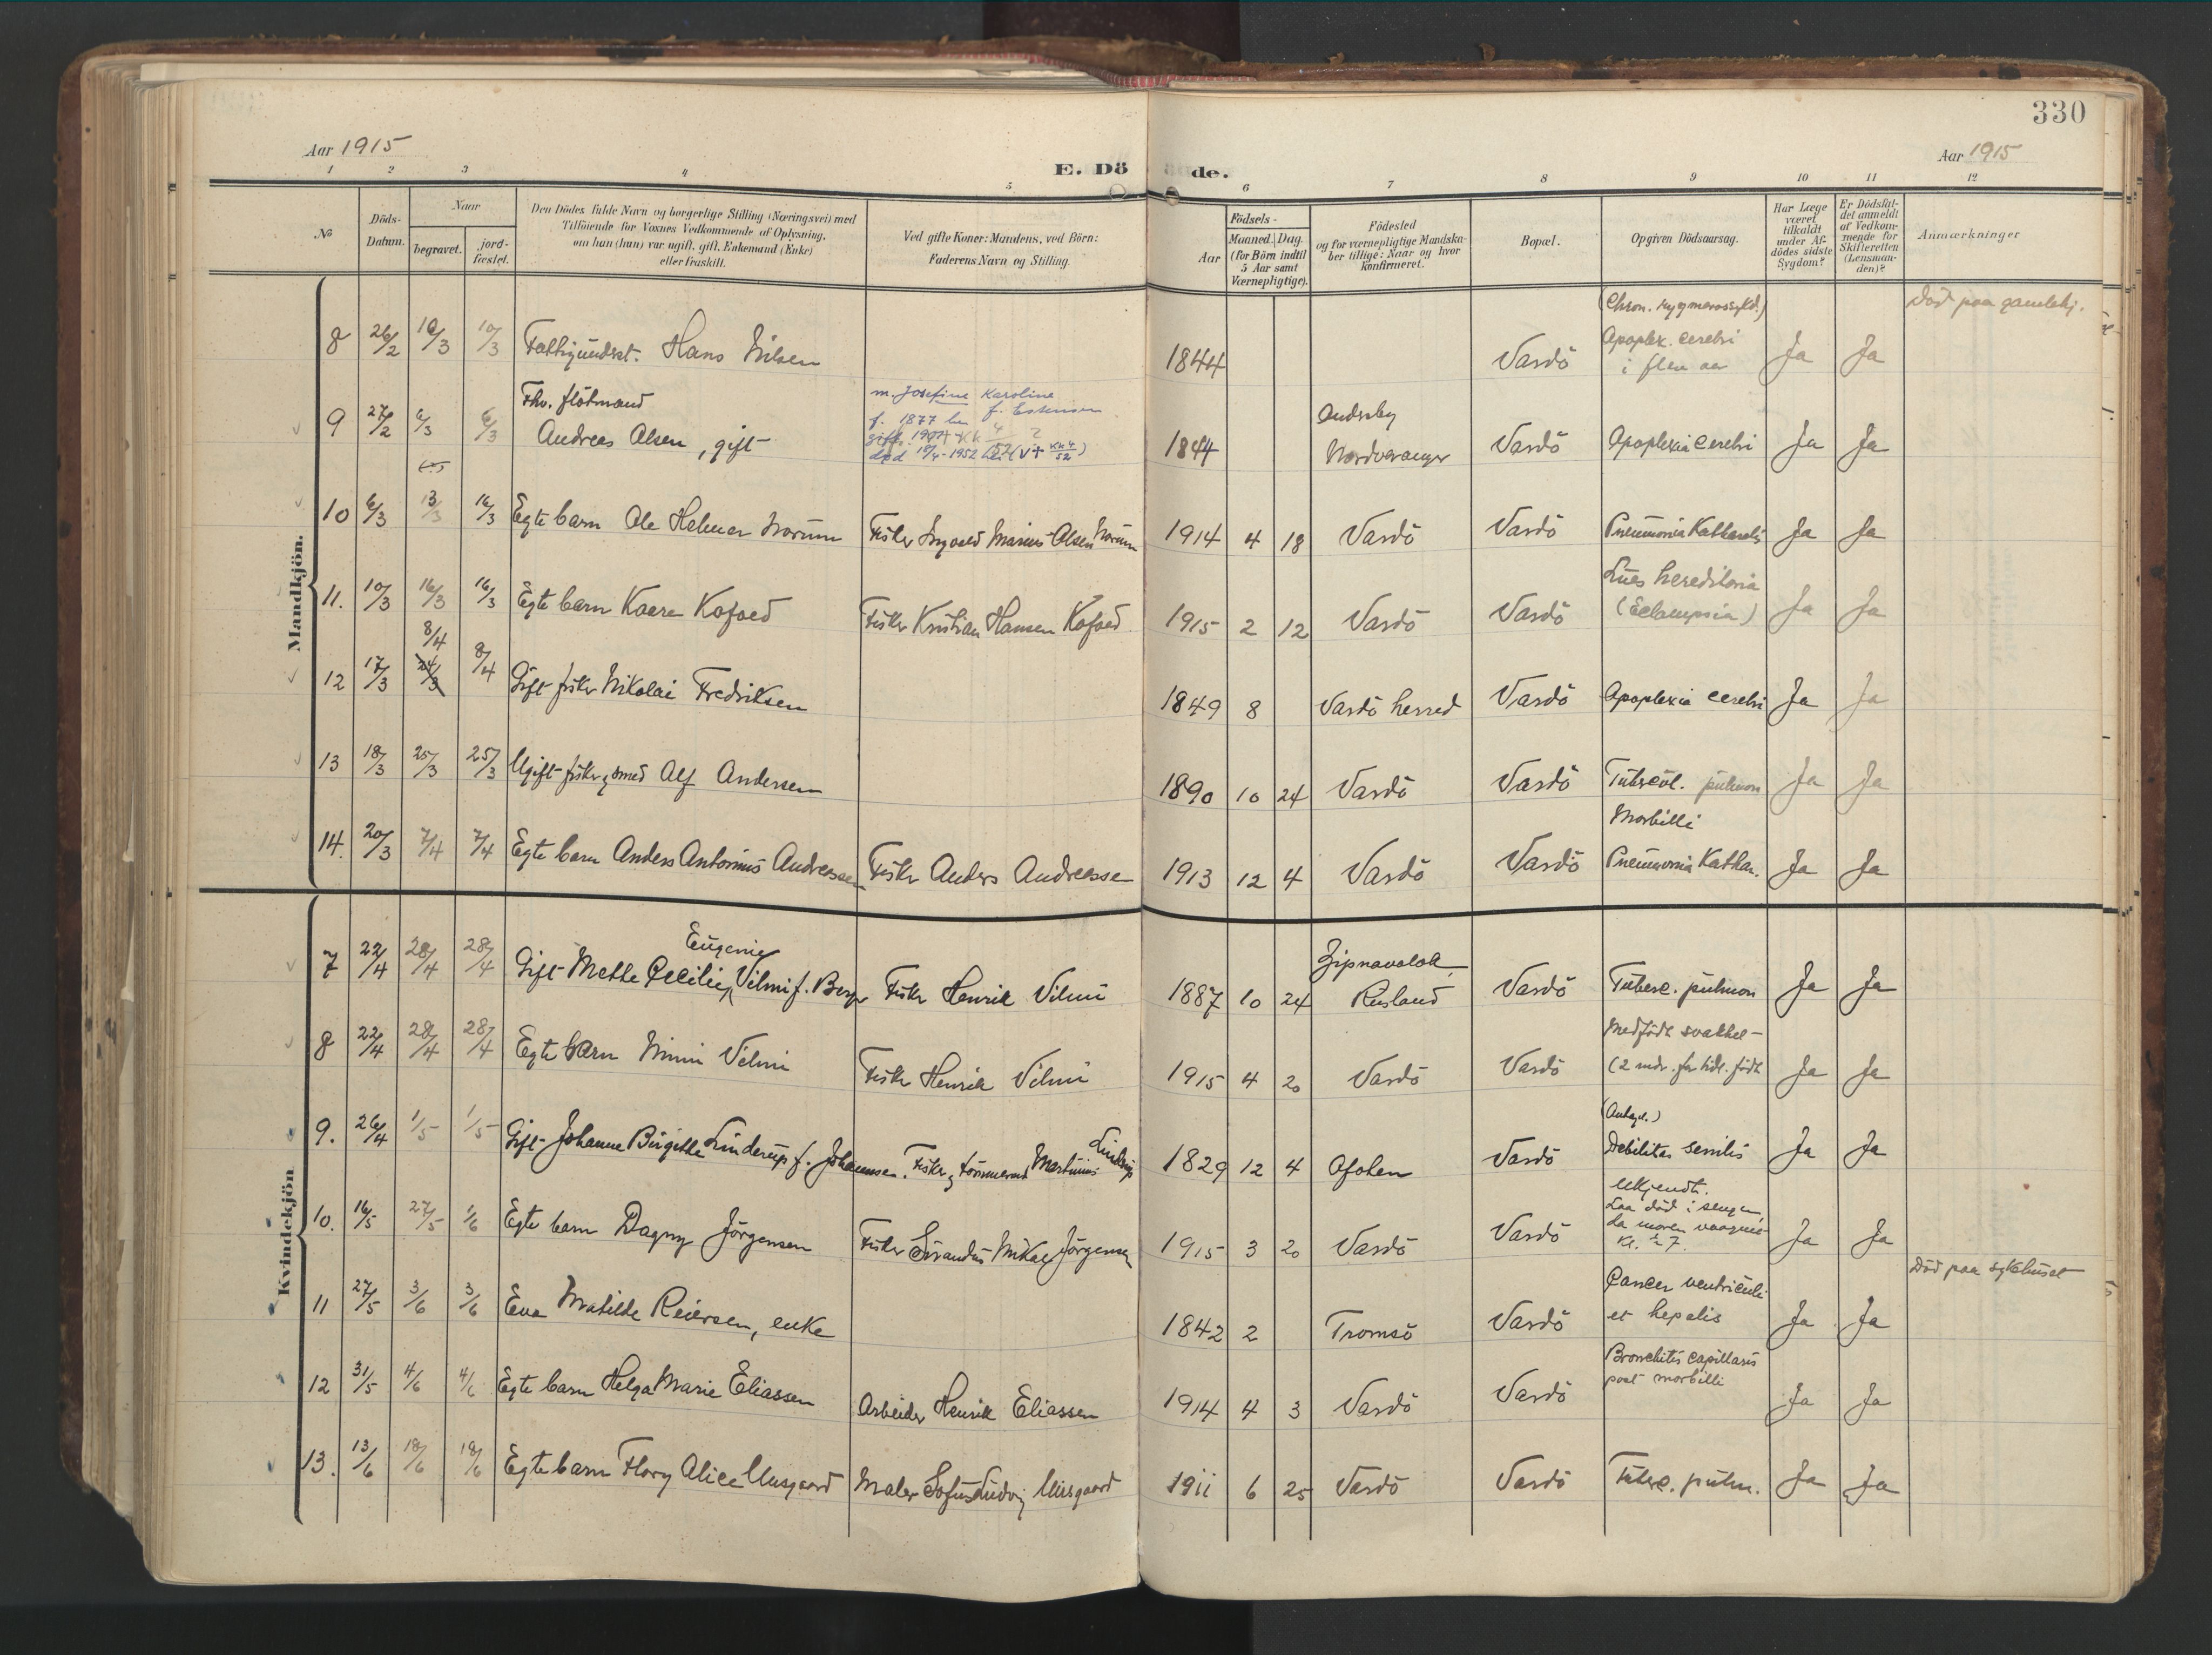 330
Aar 1915
E. Döde.
Aar 1915
1 2 3 4 5 6 7 8 9 10 11 12
No
Döds-Datum.
Naar
begravet.
jord-fæstet.
Den Dödes fulde Navn og borgerlige Stilling (Næringsvei) med
Tilföiende for Voxnes Vedkommende af Oplysning,
om han (hun) var ugift, gift, Enkemand (Enke)
eller fraskilt.
Ved gifte Koner: Mandens, ved Börn:
Faderens Navn og Stilling.
Födsels-
Aar
Maaned. Dag.
(for Börn indtil
5 Aar samt
Værnepligtige).
Födested
og for værnepligtige Mandska-
ber tillige: Naar og hvor
konfirmeret.
Bopæl.
Opgiven Dödsaarsag.
Har Læge
været
tilkaldt
under Af-
dödes sidste
Sygdom?
Er Dödsfal-
det anmeldt
af Vedkom-
mende for
Skifteretten
(Lensman-
den)?
Anmærkninger
Mandkjön.
8 26/2 10/3 10/3 Fattigunderst. Hans Nilsen 1844 Vardö (Chron. rygmarvssykd.) Apoplex. cerebri i flere aar Ja Ja Död paa gamlehj.
9 27/2 6/3 6/3 Fhv. flötmand
Andreas Olsen, gift m. Josefine Karoline
f. 1877
død 1952 1844 Andersby Nordvaranger Vardö Apoplexia cerebri Ja Ja
10 6/3 13/3 16/3 Egte barn Ole Helmer Norum Fisker Ingvald Marius Olsen Norum 1914 4 18 Vardö Vardö Pneumonia Katharalis Ja Ja
11. 10/3 16/3 16/3 Egte barn Kaare Kofoed Fisker Kristian Hansen Kofoed 1915 2 12 Vardö Vardö Lues hereditaria (Eclampsia) Ja Ja
12 17/3 24/3 8/4 8/4 Gift fisker Nikolai Fredriksen 1849 8 Vardö herred Vardö Apoplexia cerebri Ja Ja
13 18/3 25/3 25/3 Ugift fisker, smed Alf Andersen 1890 10 24 Vardö Vardö Tubercul. pulmon Ja Ja
14. 20/3 7/4 7/4 Egte barn Anders Antonius Andreassen Fisker Anders Andreassen 1913 12 4 Vardö Vardö Morbilli Pneumonia Kathar. Ja Ja
Kvindekjön
7 22/4 28/4 28/4 Gift Methe Cecilie Eugenie Vilmi f. Berger Fisker Henrik Vilmi 1887 10 24 Zipnavolok Rusland Vardö Tuberc. pulmon Ja Ja
8 22/4 28/4 28/4 Egte barn Minni Vilmi Fisker Henrik Vilmi 1915 4 20 Vardö Vardö Medfödt svakhet (2 mdr. for tidl. födt Ja Ja
9. 26/4 1/5 1/5 Gift Johanne Birgithe Linderup f. Johannsen. Fisker, tömmerm. Martinus Linderup 1829 12 4 Ofoten Vardö (Antagel.) Debilitas senilis Ja Ja
10. 16/5 27/5 1/6 Egte barn Dagny Jörgensen Fisker Mikal Jörgensen 1915 3 20 Vardö Vardö Ukjendt. Laa död i sengen, da moren vaagnet Kl. 1/2 7. Ja Ja
11 27/5 3/6 3/6 Eva Matilde Reiersen, enke 1842 2 Tromsö Vardö Cancer ventriculi et hepatis Ja Ja Död paa sykehuset
12 31/5 4/6 4/6 Egte barn Helga Marie Eliassen Arbeider Henrik Eliassen 1914 4 3 Vardö Vardö Bronchitis capillaris post morbilli Ja Ja
13. 13/6 18/6 18/6 Egte barn Flory Alice Uusgaard Maler Sofus Ludvig Uusgaard 1911 6 25 Vardö Vardö Tuberc. pulm. Ja Ja